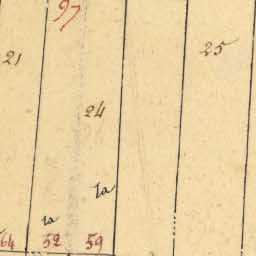 97
21
24
25
1a
1a
64 52 59